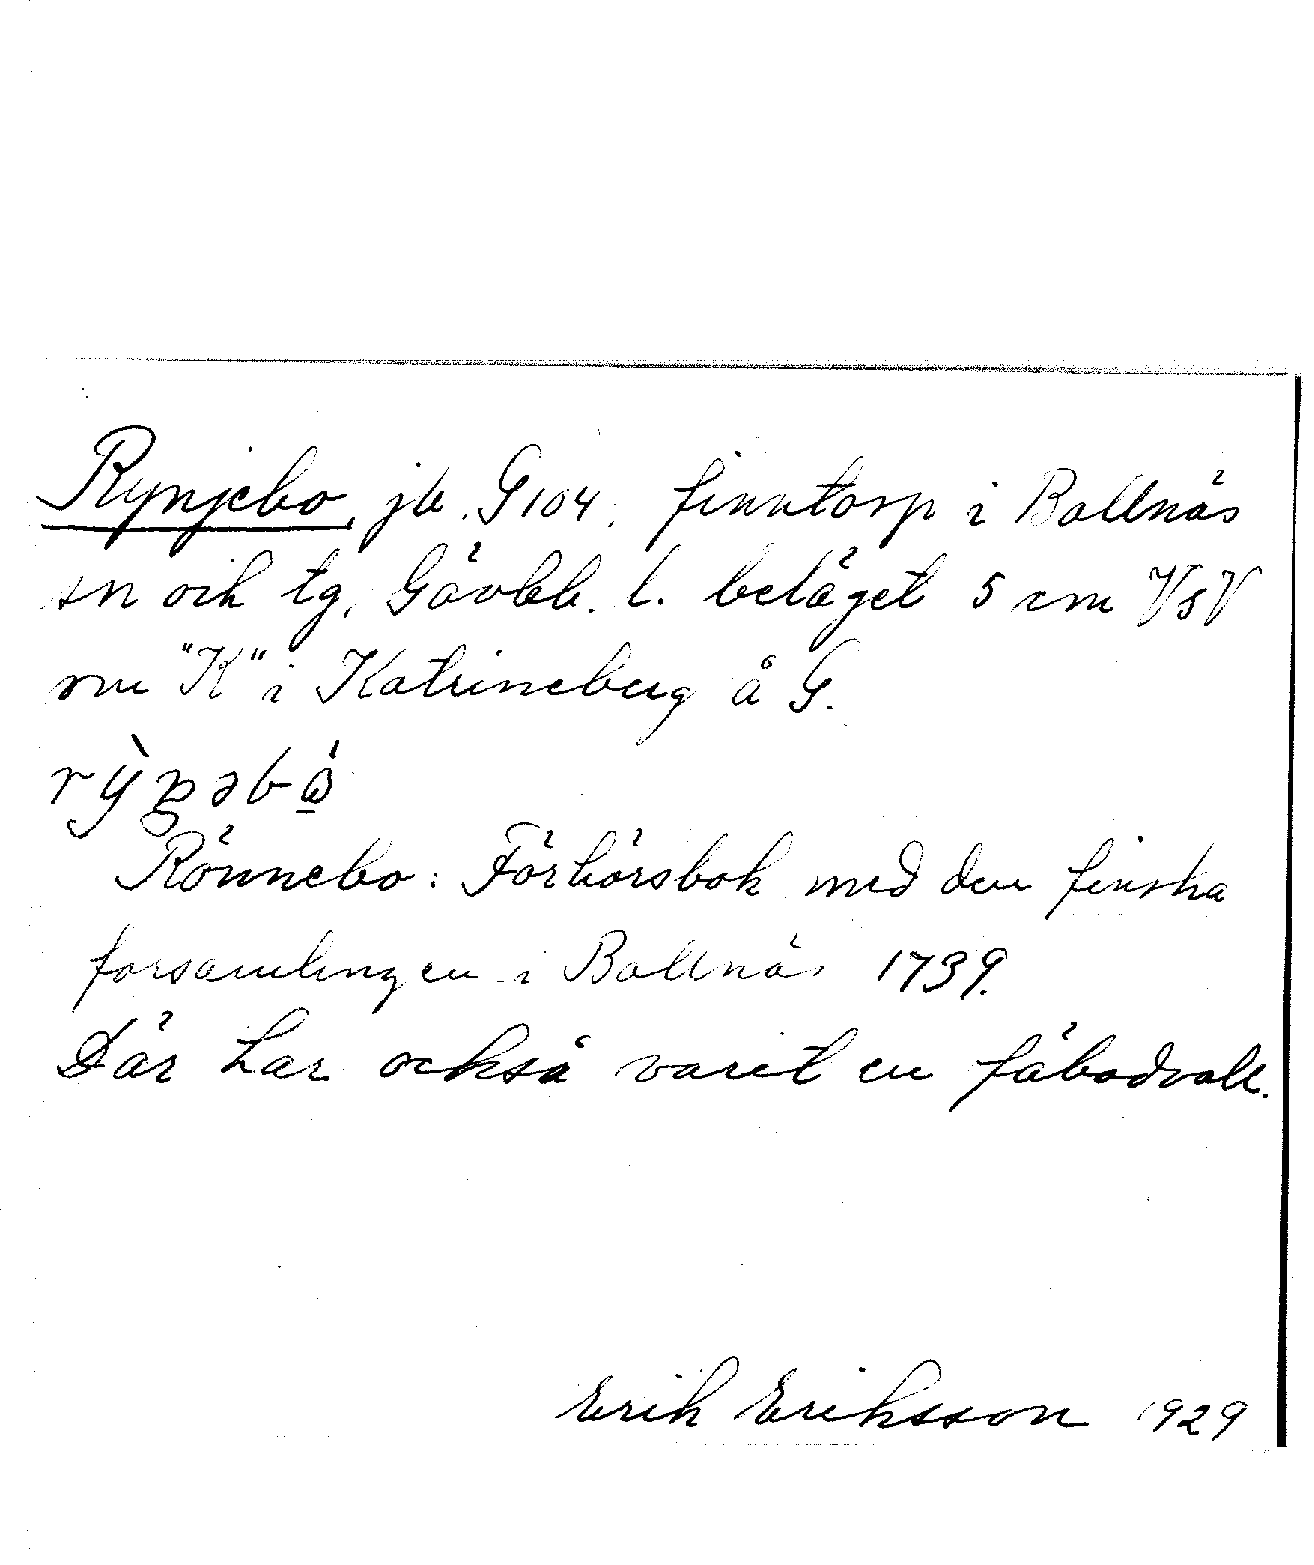 Rynjebo, jb. G 104. finntorp i Bollnäs
sn och tg, Gävleb. l. beläget 5 cm VSV
om "K" i Katrineberg å G.
Rönnebo: Förhörsbok med den finska
församlingen i Bollnäs 1739.
Där har också varit en fäbodvall.
Erik Eriksson 1929